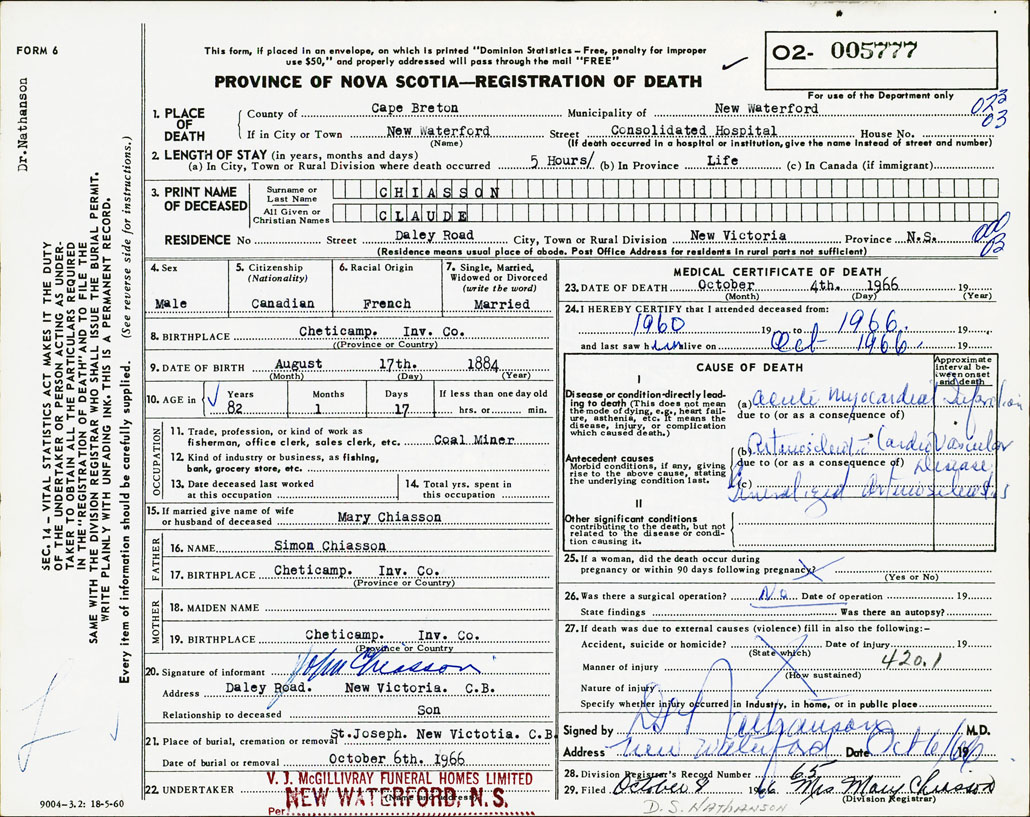 FORM 6
Dr. Nathanson
This form, if placed in an envelope, on which is printed "Dominion Statistics – Free, penalty for improper
use $50," and properly addressed will pass through the mail "FREE"
PROVINCE OF NOVA SCOTIA—REGISTRATION OF DEATH
02- 005777
For use of the Department only
SEC. 14 – VITAL STATISTICS ACT MAKES IT THE DUTY
OF THE UNDERTAKER OR PERSON ACTING AS UNDER-
TAKER TO OBTAIN ALL THE PARTICULARS REQUIRED
IN THE "REGISTRATION OF DEATH" AND TO FILE THE
SAME WITH THE DIVISION REGISTRAR WHO SHALL ISSUE THE BURIAL PERMIT.
WRITE PLAINLY WITH UNFADING INK. THIS IS A PERMANENT RECORD.
Every item of information should be carefully supplied. (See reverse side for instructions.)
1. PLACE OF DEATH
County of Cape Breton Municipality of New Waterford
023
03
If in City or Town New Waterford Street Consolidated Hospital House No.
(Name) (If death occurred in a hospital or institution, give the name instead of street and number)
2. LENGTH OF STAY (in years, months and days)
(a) In City, Town or Rural Division where death occurred 5 Hours/ (b) In Province Life (c) In Canada (if immigrant)
3. PRINT NAME OF DECEASED
Surname or Last Name CHIASSON
All Given or Christian Names CLAUDE
RESIDENCE No Street Daley Road City, Town or Rural Division New Victoria Province N.S.
(Residence means usual place of abode. Post Office Address for residents in rural parts not sufficient)
000
03
4. Sex
Male
5. Citizenship (Nationality)
Canadian
6. Racial Origin
French
7. Single, Married, Widowed or Divorced (write the word)
Married
8. BIRTHPLACE Cheticamp. Inv. Co.
(Province or Country)
9. DATE OF BIRTH August 17th. 1884
(Month) (Day) (Year)
10. AGE in Years 82 Months 1 Days 17 If less than one day old hrs. or min.
OCCUPATION
11. Trade, profession, or kind of work as
fisherman, office clerk, sales clerk, etc. Coal Miner
12. Kind of industry or business, as fishing,
bank, grocery store, etc.
13. Date deceased last worked
at this occupation
14. Total yrs. spent in
this occupation
15. If married give name of wife
or husband of deceased Mary Chiasson
FATHER
16. NAME Simon Chiasson
17. BIRTHPLACE Cheticamp. Inv. Co.
(Province or Country)
MOTHER
18. MAIDEN NAME
19. BIRTHPLACE Cheticamp. Inv. Co.
(Province or Country
20. Signature of informant John Chiasson
Address Daley Road. New Victoria. C.B.
Relationship to deceased Son
21. Place of burial, cremation or removal St.Joseph. New Victotia. C.B
Date of burial or removal October 6th. 1966
22. UNDERTAKER V. J. McGILLIVRAY FUNERAL HOMES LIMITED
NEW WATERFORD, N.S.
(Name and address)
Per
9004–3.2: 18-5-60
MEDICAL CERTIFICATE OF DEATH
23. DATE OF DEATH October 4th. 1966 19
(Month) (Day) (Year)
24. I HEREBY CERTIFY that I attended deceased from:
1960 19 to 1966. 19
and last saw him alive on Oct 1966. 19
CAUSE OF DEATH
Approximate interval between onset and death
I
Disease or condition directly lead-
ing to death (This does not mean
the mode of dying, e.g., heart fail-
ure, asthenia, etc. It means the
disease, injury, or complication
which caused death.)
(a) Acute Myocardial Infarction
due to (or as a consequence of)
Antecedent causes
Morbid conditions, if any, giving
rise to the above cause, stating
the underlying condition last.
(b) Cardio Vascular
due to (or as a consequence of) Disease
(c) Generalized Arteriosclerosis
II
Other significant conditions
contributing to the death, but not
related to the disease or condi-
tion causing it.
25. If a woman, did the death occur during
pregnancy or within 90 days following pregnancy?
(Yes or No)
26. Was there a surgical operation? No Date of operation 19
State findings Was there an autopsy?
27. If death was due to external causes (violence) fill in also the following:–
Accident, suicide or homicide? Date of injury 19
(State which)
420.1
Manner of injury
(How sustained)
Nature of injury
Specify whether injury occurred in industry, in home, or in public place
Signed by D S Nathanson M.D.
Address New Waterford Date Oct 6/66 19
28. Division Registrar's Record Number 65
29. Filed October 8 1966 Mrs. Mary Chiasson
(Division Registrar)
D. S. NATHANSON